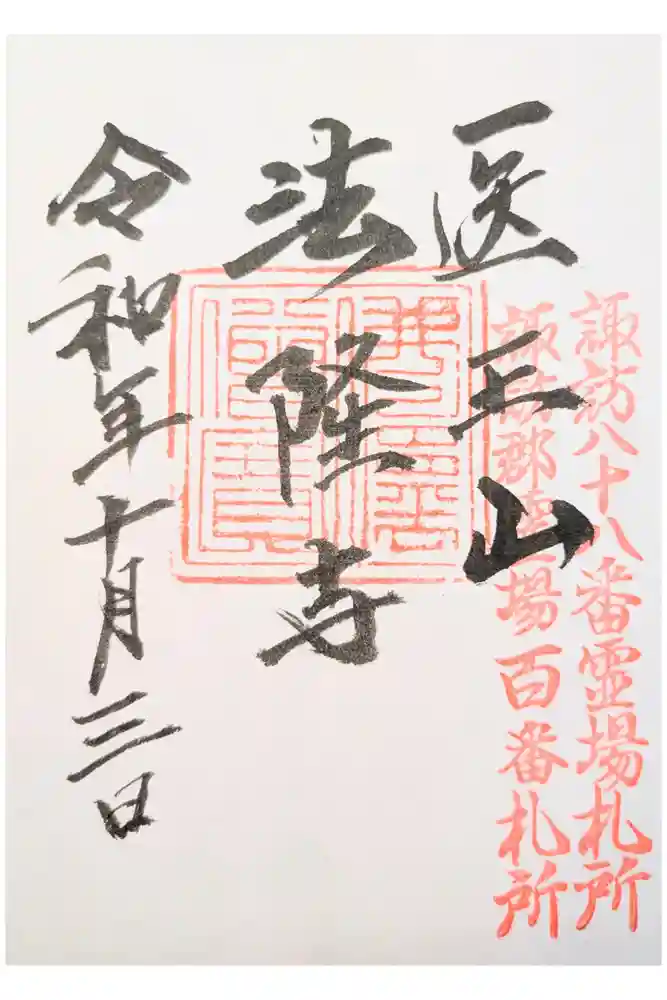 諏訪八十八番霊場札所
諏訪郡霊場百番札所
医王山
法隆寺
令和年十月三日
佛法僧寳